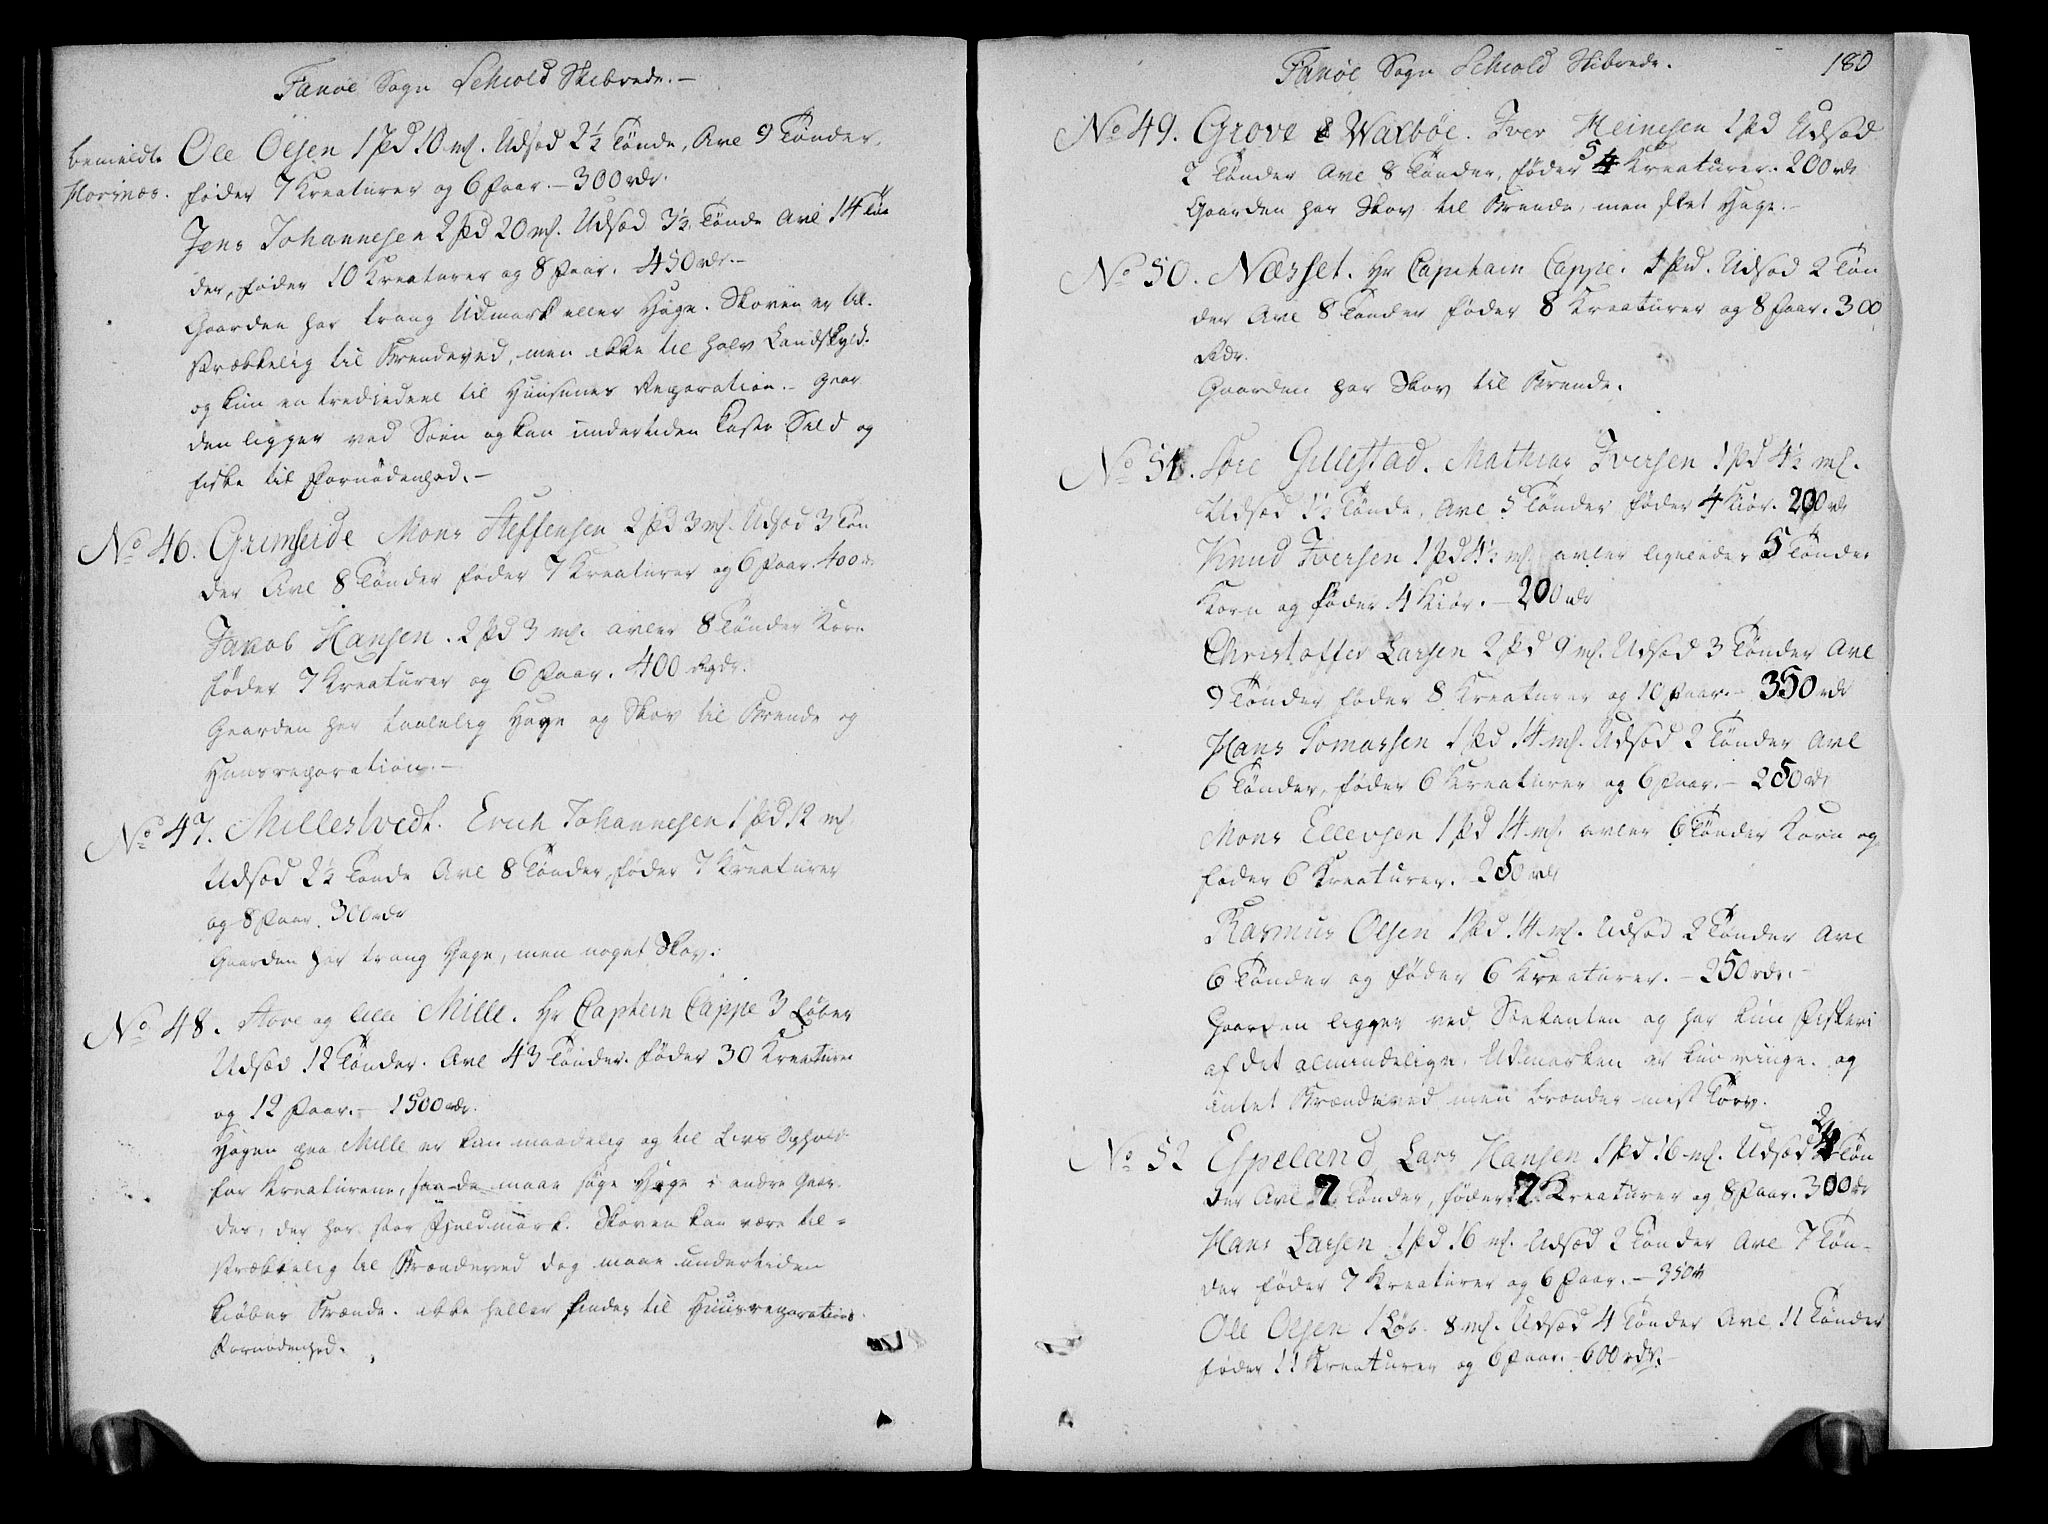 Fanøe Sogn Schiold Skibrede. –
bemeldte
Horsnæs.
Ole Olsen 1 Pd 18 mk. Udsæd 2½ Tønde, Avl 9 Tønder,
føder 7 Kreaturer og 6 Faar. – 300 rdr.
Jens Johannesen 2 Pd 20 mk. Udsæd 3½ Tønde Avl 14 Tøn
der, føder 10 Kreaturer og 8 Faar. 450 rdr. –
Gaarden har trang Udmark eller Hage. Skoven er til-
strækkelig til Brendeved, men ikke til halv Landskyld.
og kun en trediedeel til Huusenes Reparation. – Gaar
den ligger ved Søen og kan undertiden kaste Sild og
fiske til Fornødenhed. –
No 46. Grimseide Mons Steffensen 2 Pd 3 mk. Udsæd 3 Tøn
der Avl 8 Tønder føder 7 Kreaturer og 6 Faar. 400 r.
Jacob Hansen. 2 Pd 3 mk. avler 8 Tønder Korn
føder 7 Kreaturer og 6 Faar. 400 Rdr.
Gaarden har taalelig Hage og Skov til Brende og
Huusreparation. –
No 47. Millestvedt. Erich Johannesen 1 Pd 12 mk
Udsæd 2½ Tønde Avl 8 Tønder, føder 7 Kreaturer
og 8 Faar. 300 rdr
Gaarden har trang Hage, men noget Skov.
No 48. Store og lille Mille. Hr Captein Cappe 3 Løber
Udsæd 12 Tønder. Avl 43 Tønder. føder 30 Kreaturer
og 12 Faar. – 1500 rdr.
Hagen paa Mille er kun maadelig og til Livs Ophold
for Kreaturene, saa de maae søge Hage i andre Gaar-
der, der har stor Fieldmark. Skoven kan være til-
strækkelig til Brændeved dog maae undertiden
kiøbes Brænde. ikke heller findes til Huusreparations
Fornødenhed.
Fanøe Sogn Schiold Skibrede.
180
No 49. Grove & Waxbøe. Iver Heinesen 1 Pd Udsæd
2 Tønder Avl 8 Tønder, føder 5 4 Kreaturer. 200 rdr
Gaarden har Skov til Brende, men slet Hage. –
No 50. Næsset. Hr Capitain Cappe. 1 Pd. Udsæd 2 Tøn
der Avl 8 Tønder føder 8 Kreaturer og 8 Faar. 300
Rdr.
Gaarden har Skov til Brende.
No 51. Søre Gillestad. Mathias Iversen 1 Pd 4½ mk.
Udsæd 1½ Tønde, Avl 5 Tønder føder 4 Kiør. 200 rdr
Knud Iversen 1 Pd 4½ mk. avler ligeledes 5 Tønder
Korn og føder 4 Kiør. – 200 rdr
Christoffer Larsen 2 Pd 9 mk. Udsæd 3 Tønder Avl
9 Tønder føder 8 Kreaturer og 10 Faar. – 350 rdr
Hans Tomassen 1 Pd 14 mk. Udsæd 2 Tønder Avl
6 Tønder, føder 6 Kreaturer og 6 Faar. – 250 rdr
Mons Ellevsen 1 Pd 14 mk. avler 6 Tønder Korn og
føder 6 Kreaturer. 250 rdr
Rasmus Olsen 1 Pd. 14 mk. Udsæd 2 Tønder Avl
6 Tønder og føder 6 Kreaturer. – 250 rdr. –
Gaarden ligger ved Søekanten og har kun Fiskeri
af det almindelige. Udmarken er kun ringe. og
intet Brændeved men brænder mest Torv.
No 52 Espeland Lars Hansen 1 Pd 16 mk. Udsæd 2 Tøn
der Avl 7 Tønder, føder 7 Kreaturer og 8 Faar. 300 rdr
Hans Larsen 1 Pd 16 mk. Udsæd 2 Tønder Avl 7 Tøn-
der føder 7 Kreaturer og 6 Faar. – 350 r
Ole Olsen 1 Løb. 8 mk. Udsæd 4 Tønder Avl 11 Tønder
føder 11 Kreaturer og 6 Faar. – 600 rdr. –